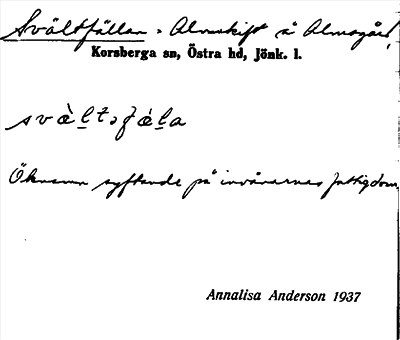 Svältfällan, Almskift å Almagård,
Korsberga sn, Östra hd, Jönk. l.
svàltˌfála
Öknamn syftande på invånarnas fattigdom.
Annalisa Anderson 1937